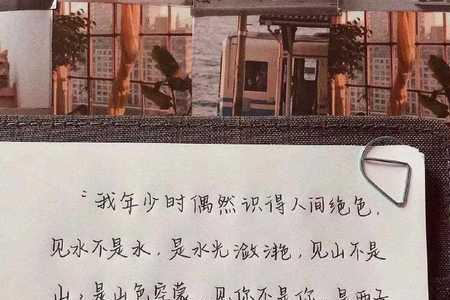 "我年少时偶然识得人间绝色,
见水不是水,是水光潋滟,见山不是
山,是山色空蒙,见你不是你,是西子